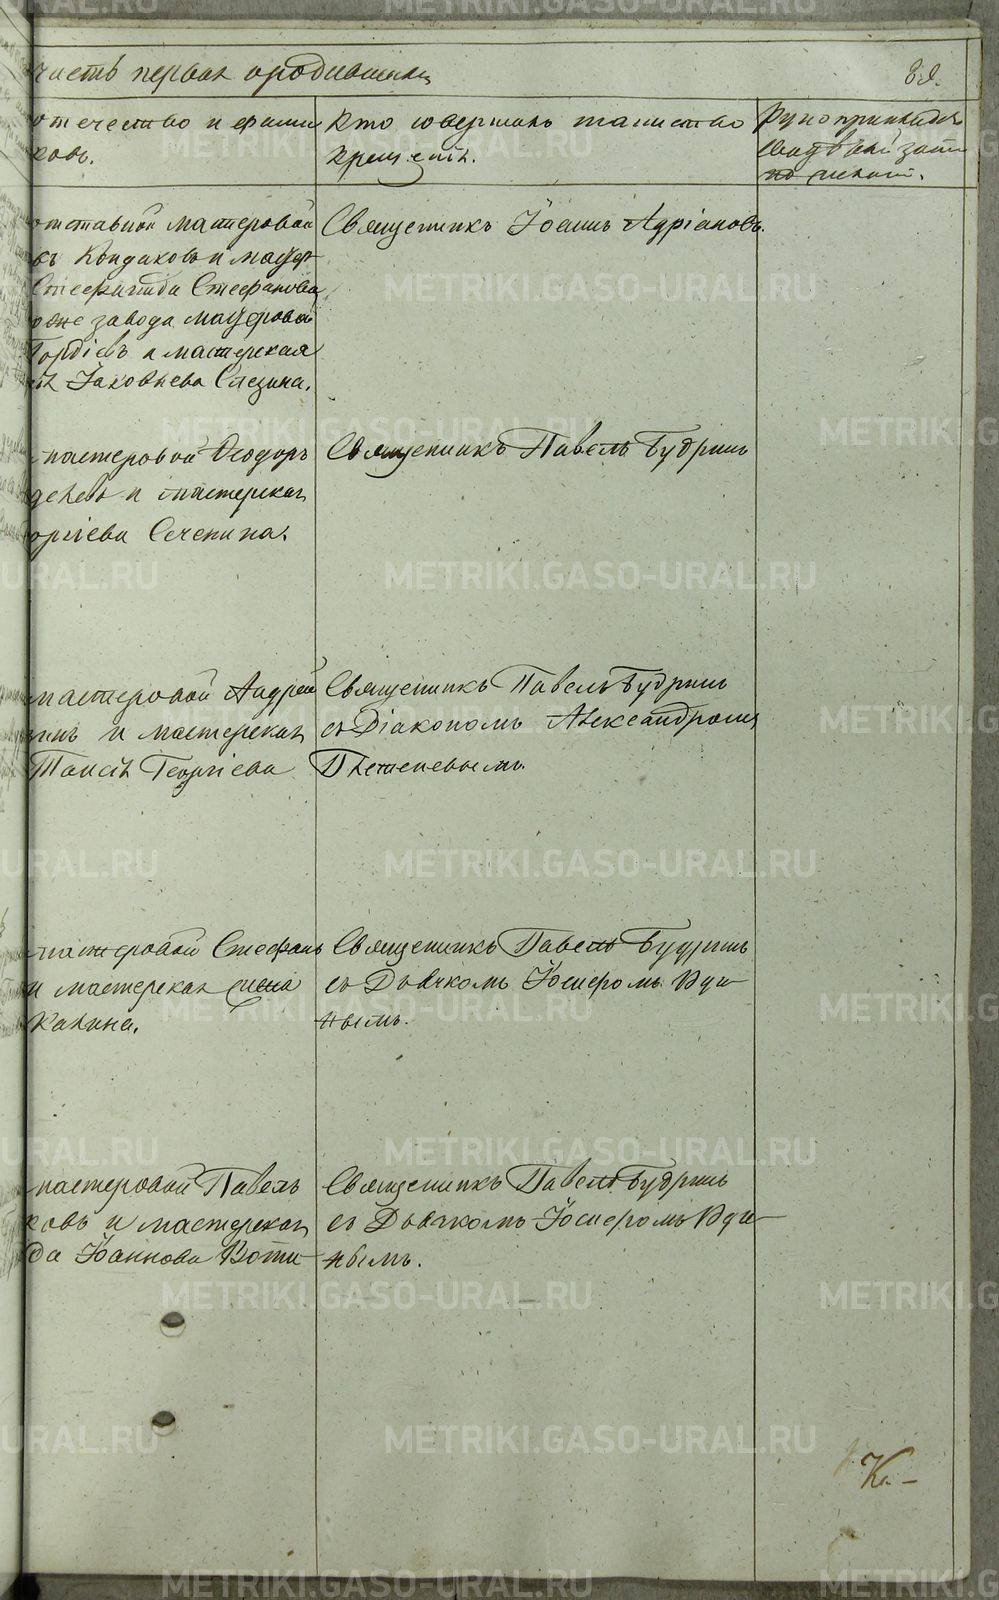 часть первая о родившихся
отечество и фами
ковъ.
Кто совершалъ таинство
крещенія.
Рукоприкладст
свид
по желан.
отставной мастеровой
въ Кондаковъ и мастер
Стефанида Стефанова
завода мастеровой
Гордѣевъ и мастерская
Яковлева Слезина.
Священникъ Іоаннъ Адріановъ.
мастеровой Ѳеодоръ
и мастерская
оргіева Сеченина.
Священникъ Павелъ Будринъ
мастеровой Андрей
инъ и мастерская
Таисія Георгіева
Священникъ Павелъ Будринъ
съ Діакономъ Александромъ
Плетеневымъ.
мастеровой Стефанъ
и мастерская
Калина.
Священникъ Павелъ Будринъ
съ Дьячкомъ Іосифомъ Уди
нымъ.
мастеровой Павелъ
ковъ и мастерская
да Іоаннова Воти
Священникъ Павелъ Будринъ
съ Дьячкомъ Іосифомъ Уди
нымъ.
METRIKI.GASO-URAL.RU